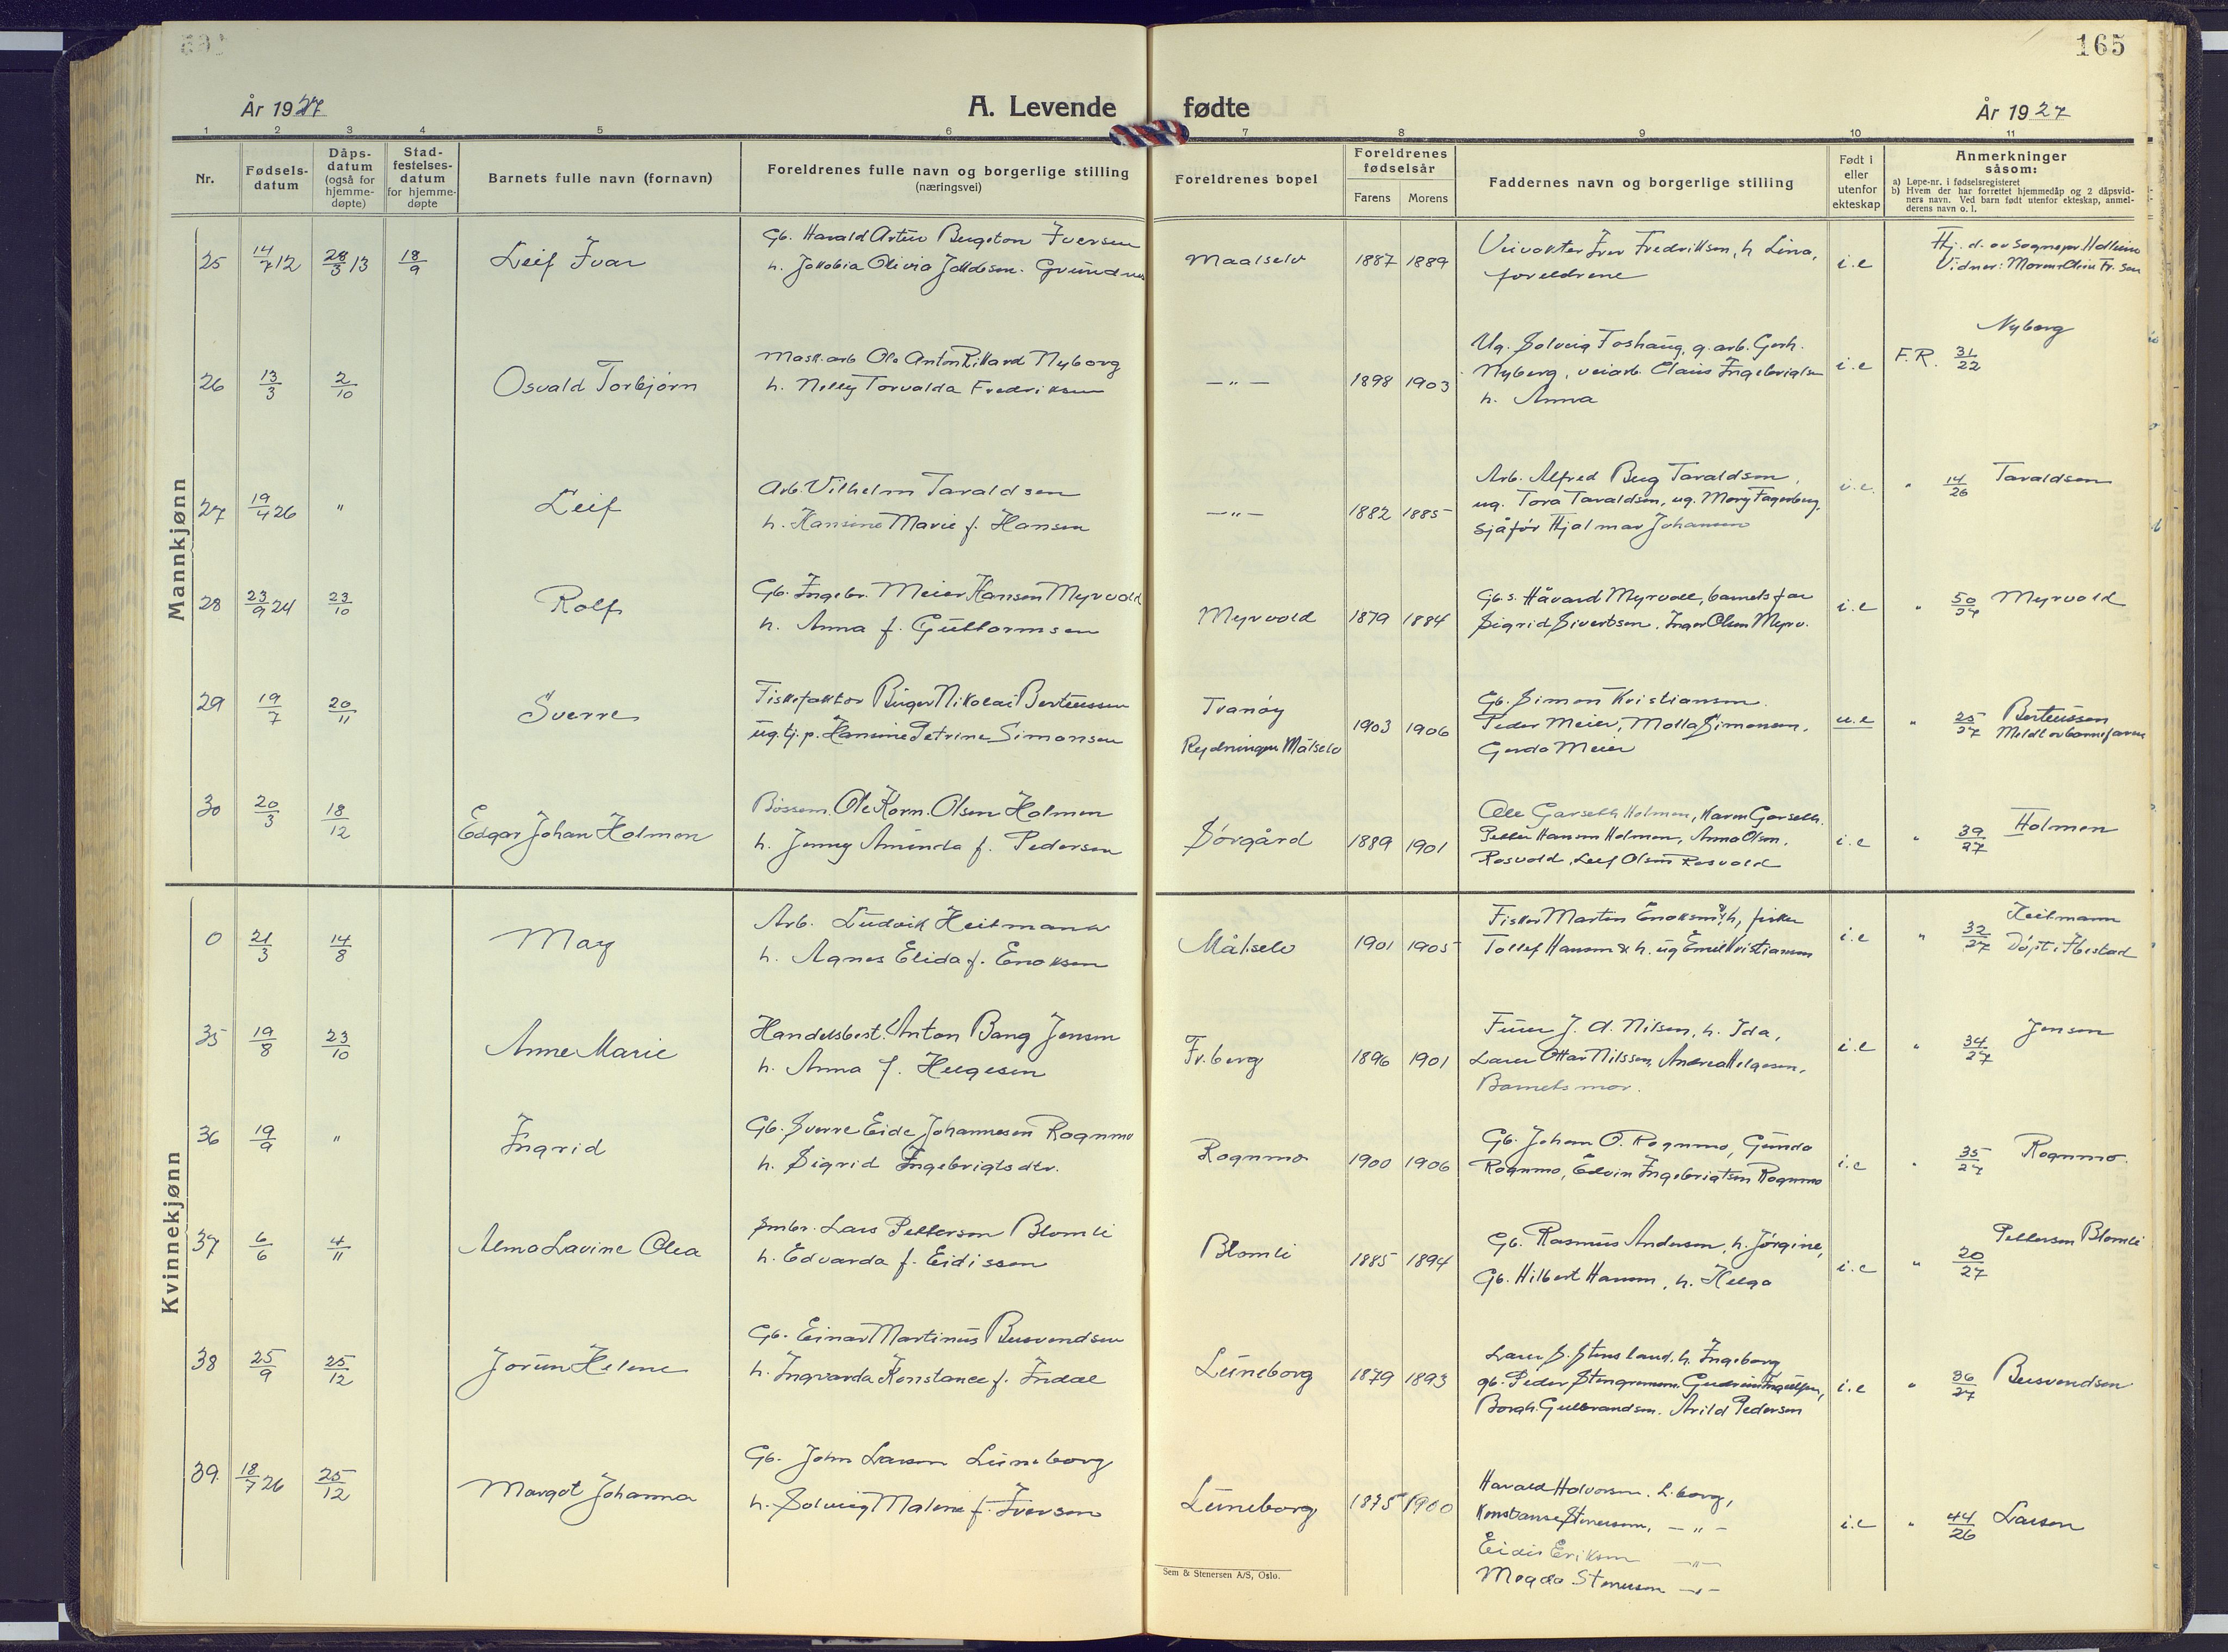 165
År 1927
A. Levende fødte
År 1927
1 2 3 4 5 6 7 8 9 10 11
Nr.
Fødsels-
datum
Dåps-
datum
(også for
hjemme-
døpte)
Stad-
festelses-
datum
for hjemme-
døpte
Barnets fulle navn (fornavn)
Foreldrenes fulle navn og borgerlige stilling
(næringsvei)
Foreldrenes bopel
Foreldrenes
fødselsår
Farens
Morens
Faddernes navn og borgerlige stilling
Født i
eller
utenfor
ekteskap
Anmerkninger
såsom:
a) Løpe-nr. i fødselsregisteret
b) Hvem der har forrettet hjemmedåp og 2 dåpsvid-
ners navn. Ved barn født utenfor ekteskap, anmel-
derens navn o. l.
Mannkjønn
25 14/7 12 28/3 13 18/9 Leif Ivar
Gb. Harald Artur Bergeton Iversen
h. Jakobia Olivia Jakobsen.
Maalselv 1887 1889
Veivokter Iver Fredriksen, h Lina,
foreldrene
i.e
Hj. d. av sognepr.
Vidner:
26 13/3 2/10 Osvald Torbjørn
Mask.arb Ole Anton Rikard Nyborg
h. Nelly Torvalda Fredriksen
— " — 1898 1903
Ug. Solveig Foshaug, g. arb. Gerh.
Nyberg, veiarb. Claus Ingebrigtsen
h. Anna
i.e F.R. 31/22 Nyborg
27 19/4 26 " Leif
Arb. Vilhelm Taraldsen
h. Hansine Marie f. Hansen
— " — 1882 1885
Arb. Alfred Berg Taraldsen,
ug. Tora Taraldsen, ug. Mary Fagerberg,
Sjåfør Hjalmar Johansen
i.e. " 14/26 Taraldsen
28 23/9 24 23/10 Rolf
Gb. Ingebr. Meier Hansen Myrvold
h. Anna f. Guttormsen
Myrvold 1879 1884
Gb.s. Håvard Myrvoll, barnets far
Sigrid Sivertsen, Inger Olsen Myrv.
i.e " 50/24 Myrvold
29 19/7 20/11 Sverre
Fiskefaktor Birger Nikolai Berteussen
ug. tj. p. Hansine Petrine Simonsen
Tranøy
Rydningen Målselv
1903 1906
Gb. Simon Kristiansen.
Peder Meier, Molla Simonsen,
Gerda Meier
u.e " 25/27 Berteussen
Meldt av barnefaren
30 20/3 18/12 Edgar Johan Holmen
Bøssem. Ole Korn. Olsen Holmen
h. Jenny Aminda f. Pedersen
Sørgård 1889 1901
Ole Garseth Holmen, Karen Garseth.
Petter Hansen Holmen, Anna Olsen.
Rosvold, Leif Olsen Rosvold
i.e " 39/27 Holmen
Kvinnekjønn
0 21/3 14/8 May
Arb. Ludvik Heitmann
h. Agnes Elida f. Enoksen
Målselv 1901 1905
Fisker Martin Enoksen & h, fisker
Tollef Hansen & h. ug Emil Kristiansen
i.e " 32/27 Heitmann
Døpt i Ibestad
35 19/8 23/10 Anne Marie
Handelsbest. Anton Bang Jensen
h. Anna f. Helgesen
Fr.berg 1896 1901
J. A. Nilsen, h. Ida,
Lærer Ottar Nilssen, Andrea Helgesen,
Barnets mor.
i.e " 34/27 Jensen
36 19/9 " Ingrid
Gb. Sverre Eide Johannesen Rognmo
h. Sigrid Ingebrigtsdtr.
Rognmo 1900 1906
Gb. Johan O. Rognmo, Gunda
Rognmo, Edvin Ingebrigtsen Rognmo
i.e " 35/27 Rognmo.
37 6/6 4/11 Alma Lavine Olea
Småbr. Lars Pettersen Blomli
h. Edvarda f. Eidissen
Blomli 1885 1894
Gb. Rasmus Andersen, h. Jørgine,
Gb. Hilbert Hansen, h. Helga
i.e " 20/27 Pettersen Blomli
38 25/9 25/12 Jorun Helene
Gb. Einar Martinus Beisvendsen
h. Ingvarda Konstance f. Indal
Lüneborg 1879 1893
Lærer S. Stensland, h. Ingeborg
gb. Peder
Borgh. Gulbrandsen. Arild Pedersen
i.e " 36/27 Beisvendsen
39. 18/7 26 25/12 Margot Johanna
Gb. John Larsen Lüneborg
h. Solveig Malene f. Iversen
Lüneborg 1875 1900
Harald Halvorsen. L.borg,
Konstanse Stenersen, — " —
Eidis Eriksen — " —
Magda Stenersen — " —
i.e " 44/26 Larsen
Sem & Stenersen A/S, Oslo.